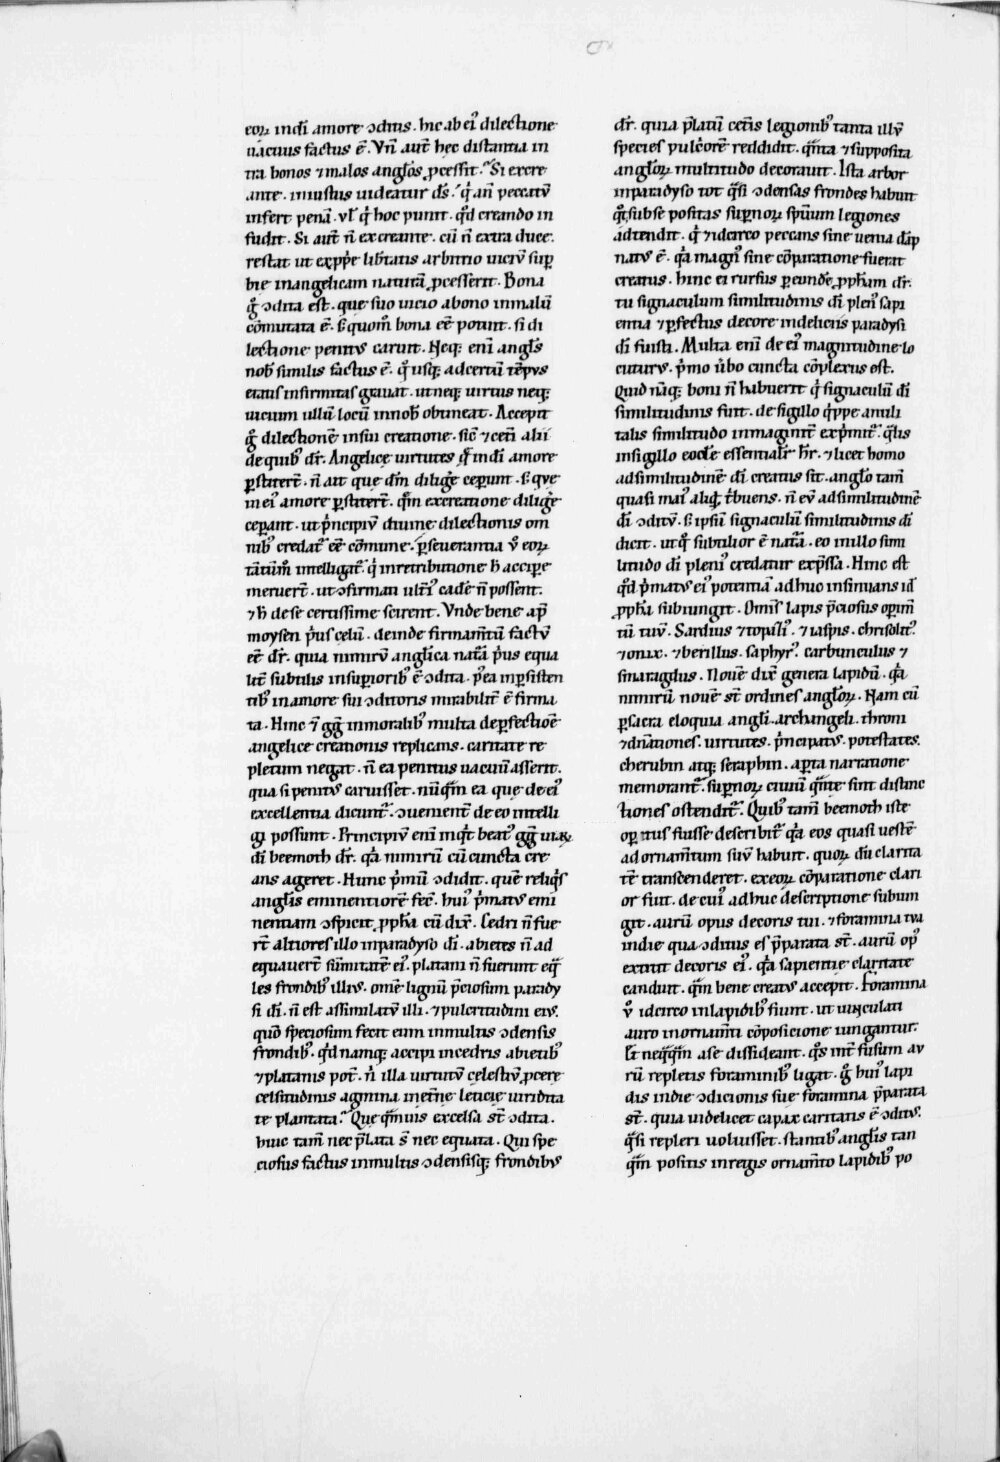 eoꝝ indī amore ɔditus. hic ab ei᷒ dilectione
uacuus factus ē. Vn̄ aut̄ hec distantia in
tra bonos ⁊ malos angl̄os ꝓcessit. Si excre
ante. iniustus uideatur dſ̄. qͥ an̄ peccatū
infert penā. vl̓ qͥ hoc punit. qd̓ creando in
fudit. Si aut̄ n̄ ex creante. cū n̄ extra duce.
restat ut ex ꝓpͥe lib̓tatis arbitrio uiciū suꝑ
bie in angelicam naturā ꝓcesserit. Bona
gͦ ɔdita est. que suo uicio a bono in malū
cōmutata ē. Sꝫ quom̊ bona eē potuit. si di
lectione penitꝰ caruit. Neqꝫ eni᷒ angl̄s
nob̓ similis factus ē. qͥ usqꝫ ad certū tēpꝰ
etatis infirmitas grauat. ut neqꝫ uirtus neqꝫ
uicium ullū locū in nob̓ obtineat. Accepit
gͦ dilectionē in sui creatione. sic̄ ⁊ cet̓i alii
de quib᷒ dr̄. Angelice uirtutes q̄ in dī amore
ꝑstiter̄t. n̄ ait que dm̄ dilige᷒ ceper̄unt. Sꝫ que
in ei᷒ amore ꝑstiter̄t. qm̄ ex creatione dilige᷒
ceperant. ut pͥncipiū diuine dilectionis om
nib᷒ credat᷑ eē cōmune. ꝑseuerantia v̊ eoꝝ
tātūm̊ intelligat᷑. qͥ in retributione h̄ accipe
meruer̄t. ut ɔfirmati ult̓i᷒ cade᷒ n̄ possent.
⁊ h̄ de se certissime scirent. Vnde bene ap̄
moysen pͥus celū. deinde firmam̄tū factū
eē dr̄. quia nimirū angl̄ica nat᷑a pͥus equa
lit̓ subtilis in supͥiorib᷒ ē ɔdita. p᷒ea in ꝑsisten
tib᷒ in amore sui ɔditoris mirabilit̓ ē firma
ta. Hinc ⁊ gg̓ in moralib᷒ multa de ꝑfectiōe
angelice creationis replicans. caritate re
pletum negat. n̄ ea penitus uacuū asserit.
qua si penitꝰ caruisset. nūqͣm ea que de ei᷒
excellentia dicunt᷑. ɔuenient̓ de eo intelli
gi possunt. Principiū eni᷒ inqͥt beat᷒ gg̓ uiaꝝ
dī beemoth dr̄. qͥa nimirū cū cuncta cre
ans ageret. Hunc pͥmū ɔdidit. quē reliqͥs
angl̄is eminentiorē fec̄. hui᷒ pͥmatꝰ emi
nentiam ɔspicit ꝓph̄a cū dix̄. Cedri n̄ fue
r̄t altiores illo in paradyso dī. abietes n̄ ad
equauer̄t sūmitatē ei᷒. platani n̄ fuerunt eqͣ
les frondib᷒ illiꝰ. om̄e lignū p̄ciosum parady
si dī. n̄ est assimilatū illi. ⁊ pulcritudini eiꝰ.
quō speciosum fecit eum in multis ɔdensis
frondib᷒. qd̓ namqꝫ accipi in cedris abietib᷒
⁊ platanis pot̄. n̄ illa uirtutū celestiū ꝓcere
celsitudinis agmina in et̓ne letacie uiridita
te plantata. Que qͣmuis excelsa st̄ ɔdita.
huic tam̄ nec p̄lata s̄ nec equata. Qui spe
ciosus factus in multis ɔdensisqꝫ frondibꝰ
dr̄. quia p̄latū cet̓is legionib᷒ tanta illū
species pulcͥorē reddidit. qͣnta ⁊ supposita
angl̄oꝝ multitudo decorauit. Ista arbor
in paradyso tot qͣsi ɔdensas frondes habuit
qͦt sub se positas suꝑnoꝝ sp̄uum legiones
adtendit. qͥ ⁊ idcirco peccans sine uenia dāp
natꝰ ē. qͥa magn᷒ sine cōparatione fuerat
creatus. hinc ei rursus ꝑ eund̄e ꝓph̄am dr̄.
tu signaculum similitudinis dī plen᷒ sapi
entia ⁊ ꝑfectus decore in deliciis paradysi
dī fuisti. Multa eni᷒ de ei᷒ magnitudine lo
cuturꝰ. pͥmo u̓bo cuncta cōplexus est.
Quid nāqꝫ boni n̄ habuerit qͥ signaculū dī
similitudinis fuit. de sigillo qͥppe anuli
talis similitudo inmaginit̓ expͥmit᷑. qͣlis
in sigillo eod̄e essentialit̓ hr̄. ⁊ licet homo
ad similitudinē dī creatus sit. angl̄o tam̄
quasi mai᷒ aliqͥd tͥbuens. n̄ eū ad similitudinē
dī ɔditū. sꝫ ip̄sū signaculū similitudinis dī
dicit. ut qͦ subtilior ē nat᷑a. eo in illo simi
litudo dī pleni᷒ credatur exp̄ssa. Hinc est
qd̓ pͥmatꝰ ei᷒ potentiā adhuc insinuans id̄
ꝓph̄a subiungit. Omīs lapis p̄ciosus opim̄
tū tuū. Sardius ⁊ topazi᷒. ⁊ iaspis. chrisolit᷒.
⁊ onix. ⁊ berillus. saphyr᷒. carbunculus ⁊
smaragdus. Nouē dix̄ genera lapidū. qͥa
nimirū nouē st̄ ordines angl̄oꝝ. Nam cū
ꝑ sacra eloquia angl̄i. archangeli. throni
⁊ dn̄ationes. uirtutes. pͥncipatꝰ. potestates.
cherubin atqꝫ seraphin. aꝑta narratione
memorant᷑. suꝑnoꝝ ciuiū qͣnte sint distinc
tiones ostendit᷑. Quib᷒ tam̄ beemoth iste
opertus fuisse describit᷑ qͥa eos quasi uestē
ad ornam̄tum suū habuit. quoꝝ dū clarita
tē transcenderet. ex eoꝝ cōparatione clari
or fuit. de cui᷒ adhuc descriptione subiun
git. aurū opus decoris tui. ⁊ foramina tua
in die qua ɔditus es p̄parata st̄. aurū op᷒
extitit decoris ei᷒. qͥa sapientie claritate
canduit. qͣm bene creatꝰ accepit. foramina
v̊ idcirco in lapidib᷒ fiunt. ut uinculati
auro in ornam̄ti cōposicione iungantur.
Et neqͣqͣm a se dissideant. qͦs int̓ fusum au
rū repletis foraminib᷒ ligat. gͦ hui᷒ lapi
dis in die ɔdicionis sue foramina p̄parata
st̄. quia uidelicet capax caritatis ē ɔditꝰ.
qͣ si repleri uoluisset. stantib᷒ angl̄is tan
qͣm positis in regis ornam̄to lapidib᷒ po